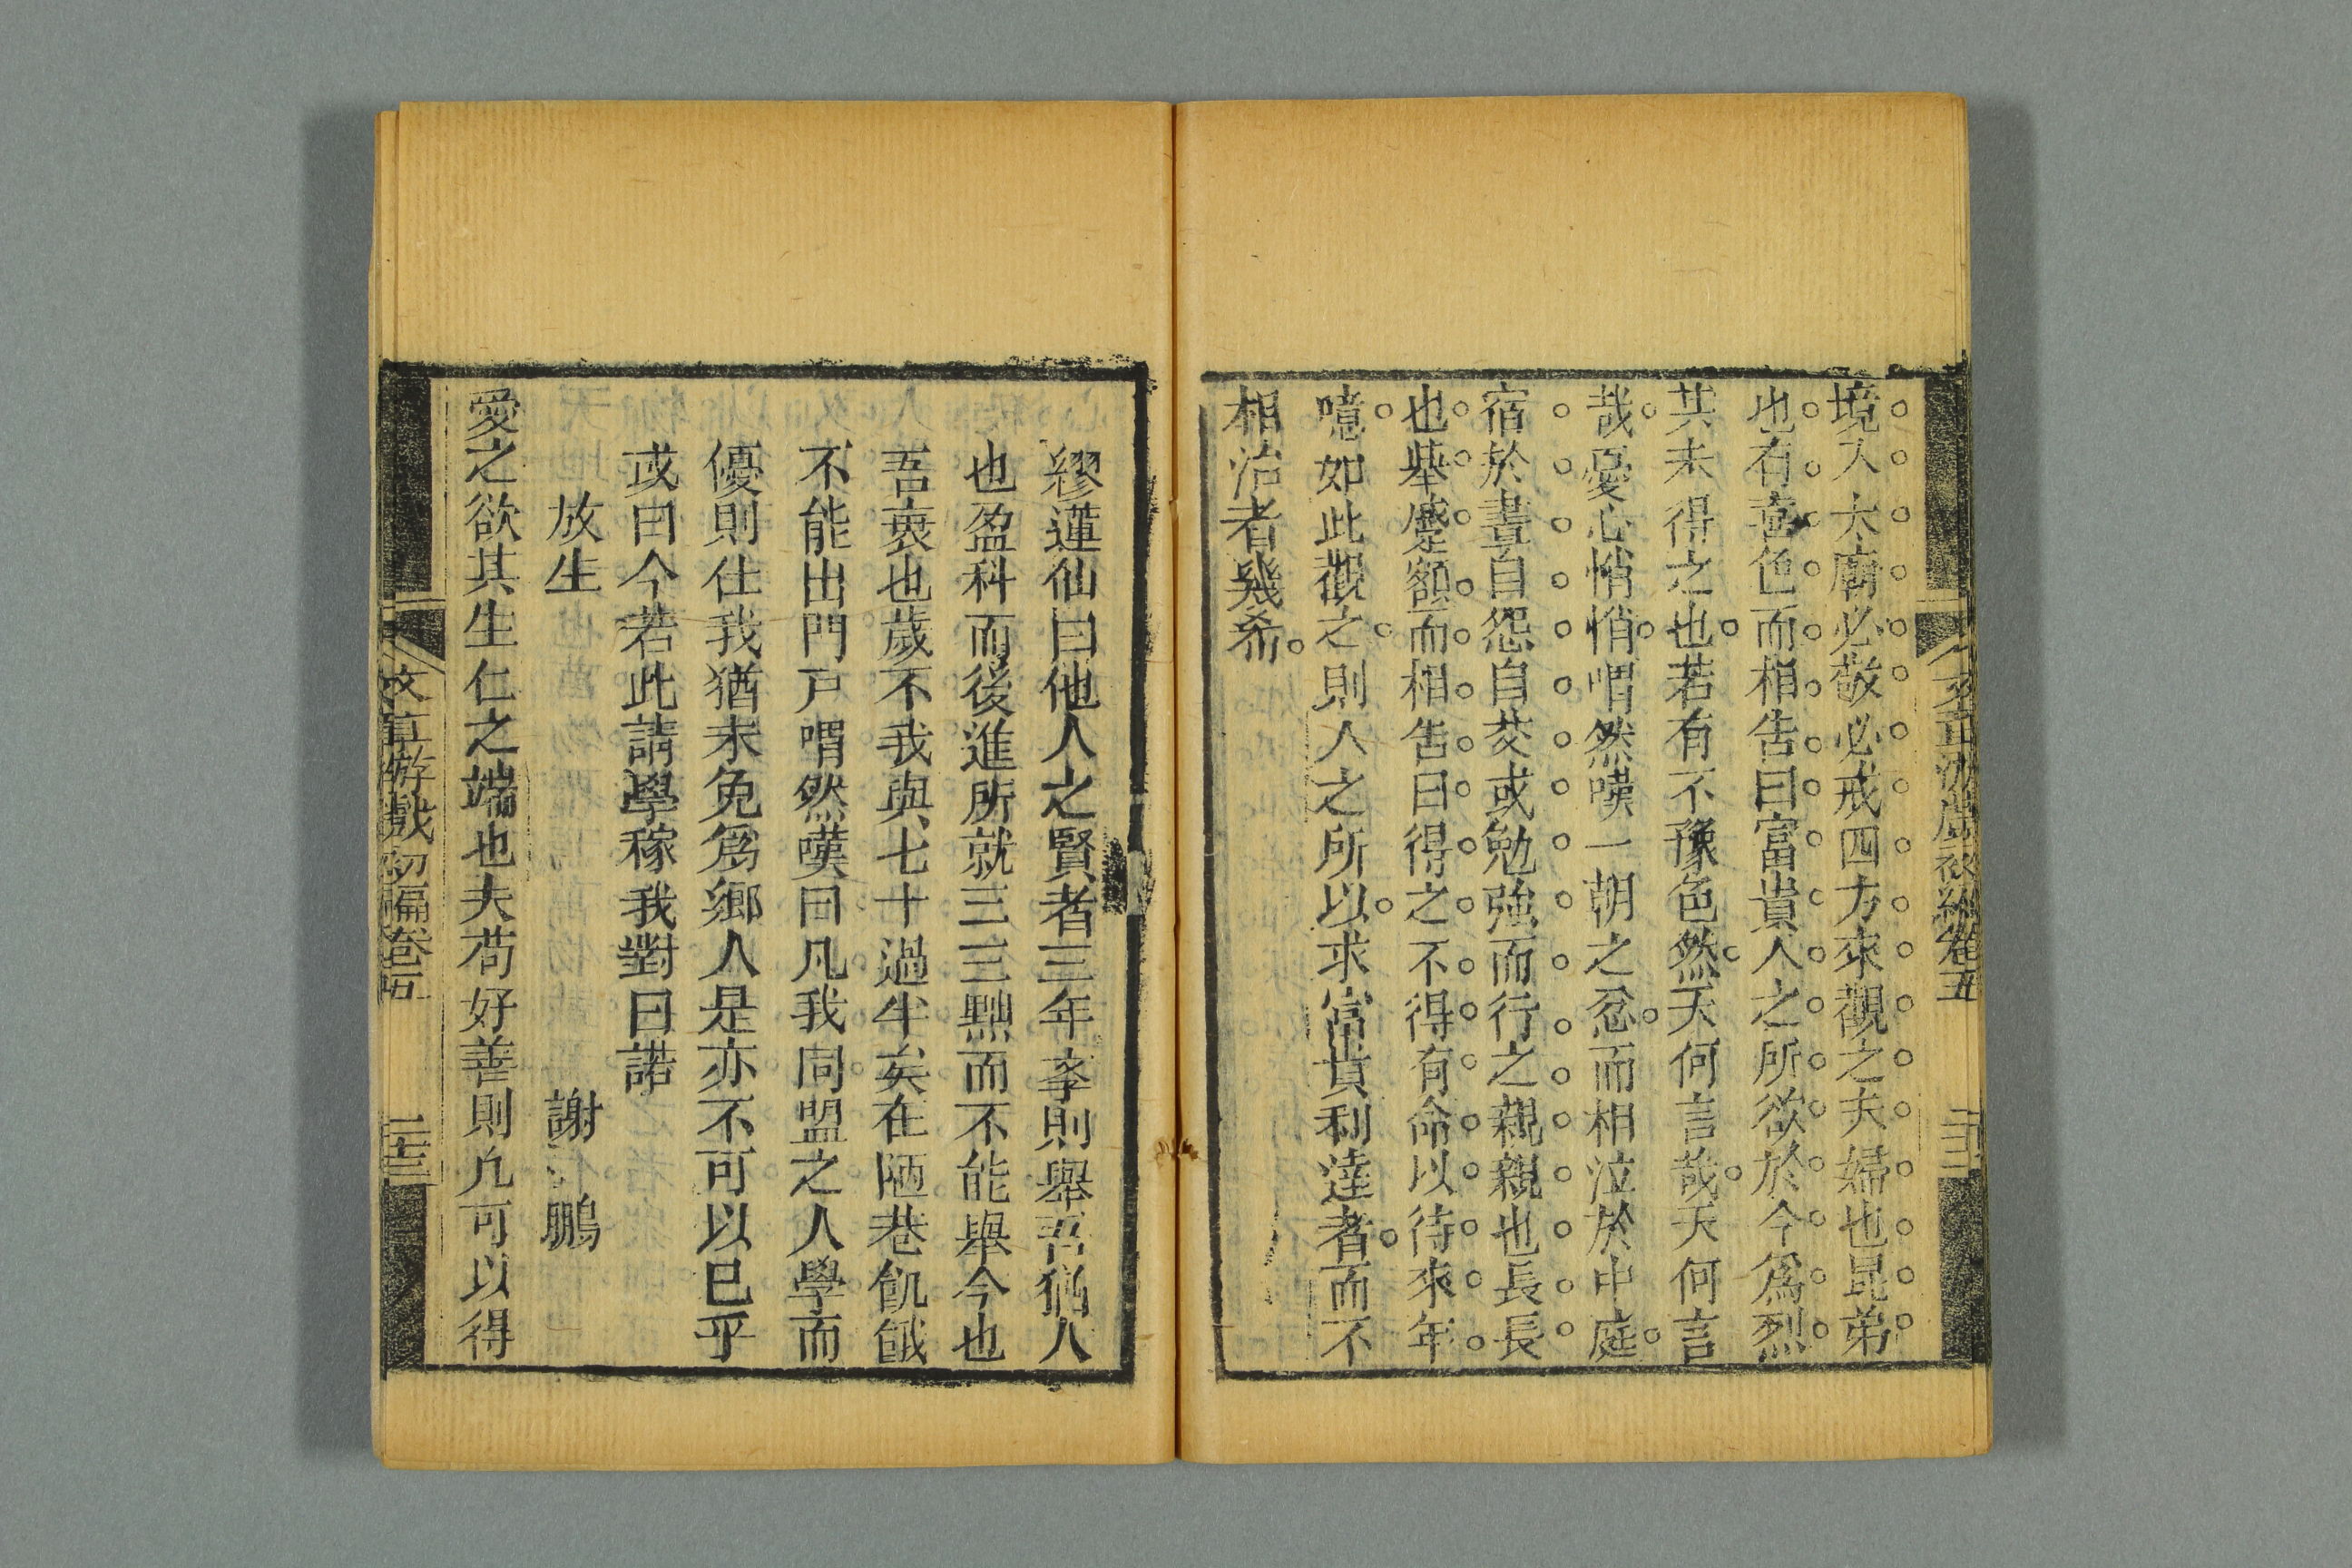 境入太廟必敬必戒四方來觀之夫婦也昆弟
也有喜色而相告曰富貴人之所欲於今爲烈
其未得之也若有不豫色然天何言哉天何言
哉憂心悄悄喟然嘆一朝之忿而相泣於中庭
宿於晝自怨自艾或勉強而行之親親也長長
也舉蹙額而相告曰得之不得有命以待來年
噫如此觀之則人之所以求富貴利達者而不
相泣者幾希
繆蓮仙曰他人之賢者三年孝則舉吾猶人
也盈科而後進所就三三黜而不能舉今也
吾衰也歲不我與七十過半矣在陋巷飢餓
不能出門戶喟然嘆曰凡我同盟之人學而
優則仕我猶未免爲鄉人是亦不可以已乎
或曰今若此請學稼我對曰諾
放生 謝鵬
愛之欲其生仁之端也夫苟好善則凡可以得
文章游戲 初編卷五 二十三